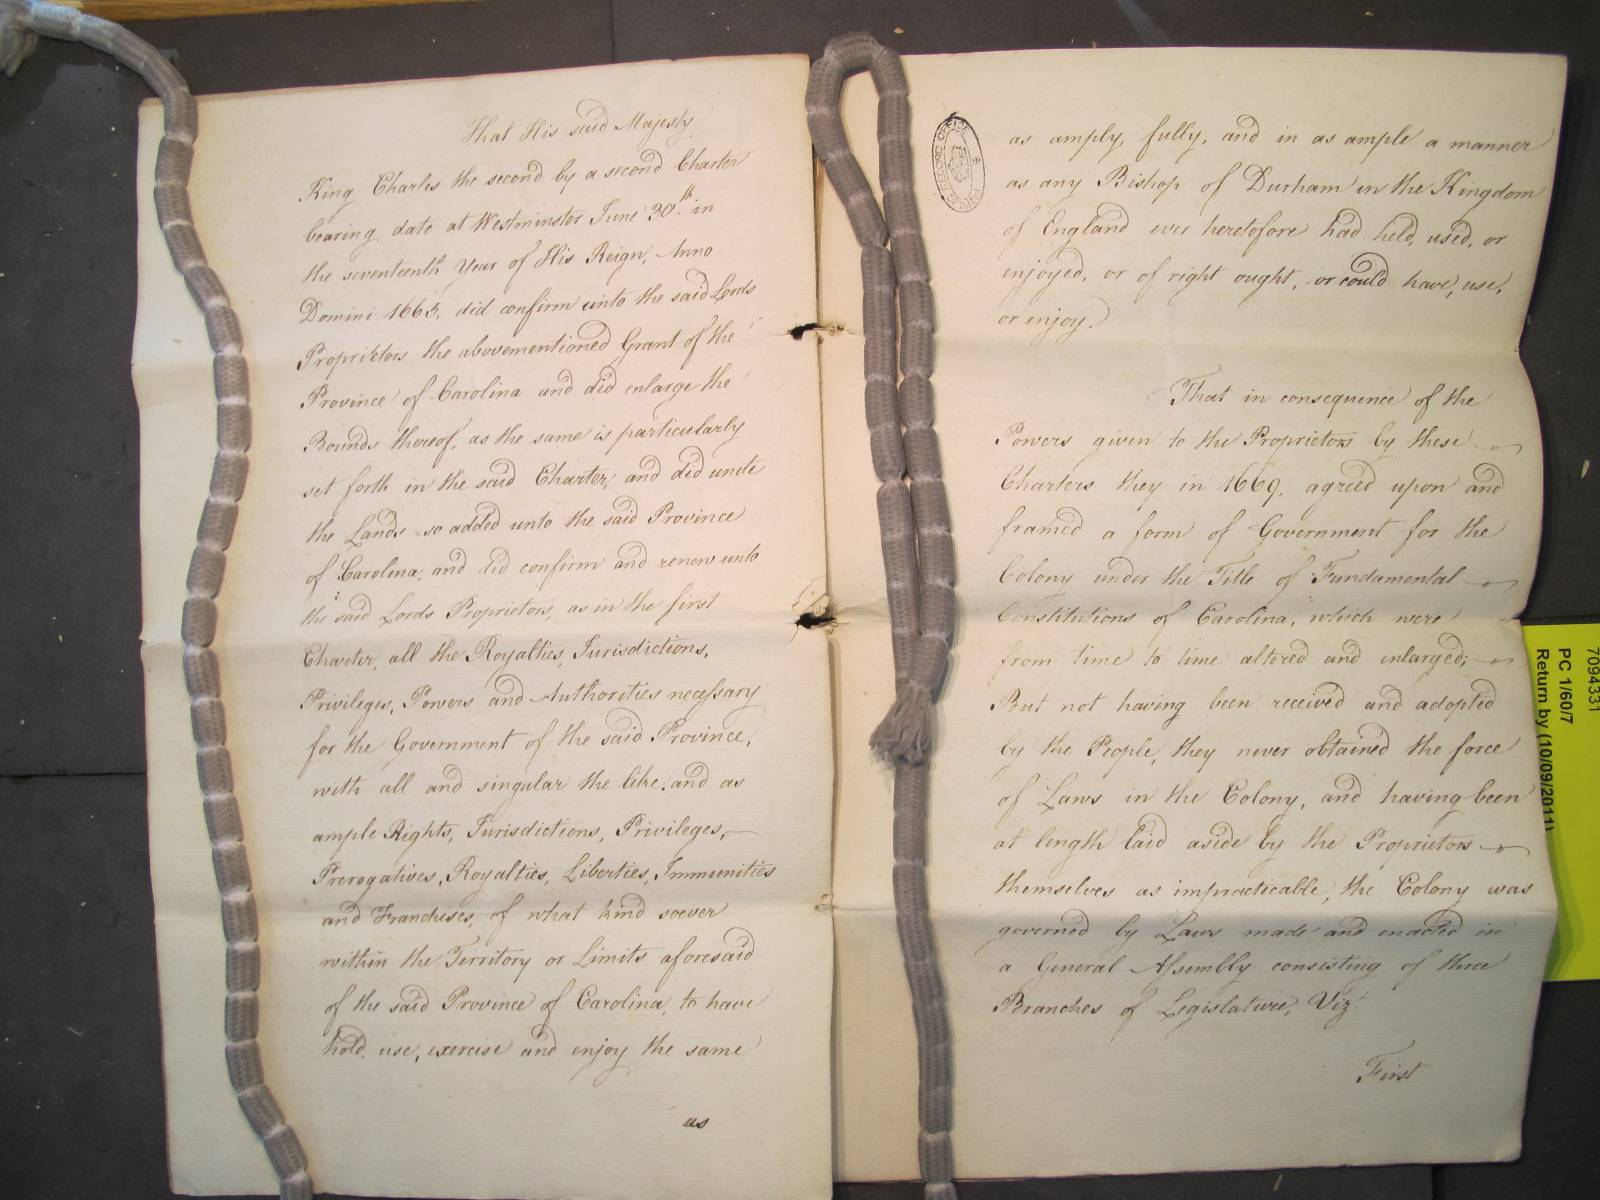 That His said Majesty
King Charles the second by a second Charter
bearing date at Westminster June 30th. in
the seventeenth Year of His Reign, Anno
Domini 1665, did confirm unto the said Lords
Proprietors the abovementioned Grant of the
Province of Carolina and did enlarge the
Bounds thereof, as the same is particularly
set forth in the said Charter, and did unite
the Lands so added unto the said Province
of Carolina, and did confirm and renew unto
the said Lords Proprietors, as in the first
Charter, all the Royalties, Jurisdictions,
Privileges, Powers and Authorities necessary
for the Government of the said Province,
with all and singular the like, and as
ample Rights, Jurisdictions, Privileges,
Prerogatives, Royalties, Liberties, Immunities
and Franchises, of what kind soever
within the Territory or Limits aforesaid
of the said Province of Carolina, to have
hold, use, exercise and enjoy the same
as
PUBLIC RECORD OFFICE
as amply, fully, and in as ample a manner
as any Bishop of Durham in the Kingdom
of England ever heretofore had held, used, or
enjoyed, or of right ought, or could have, use,
or enjoy.
That in consequence of the
Powers given to the Proprietors by these
Charters they in 1669. agreed upon and
framed a form of Government for the
Colony under the Title of Fundamental
Constitutions of Carolina, which were
from time to time altered and enlarged;
But not having been received and adopted
by the People, they never obtained the force
of Laws in the Colony, and having been
at length laid aside by the Proprietors
themselves as impracticable, the Colony was
governed by Laws made and enacted in
a General Assembly consisting of three
Branches of Legislature, Viz.
First
7094331
PC 1/60/7
Return by (10/09/2011)